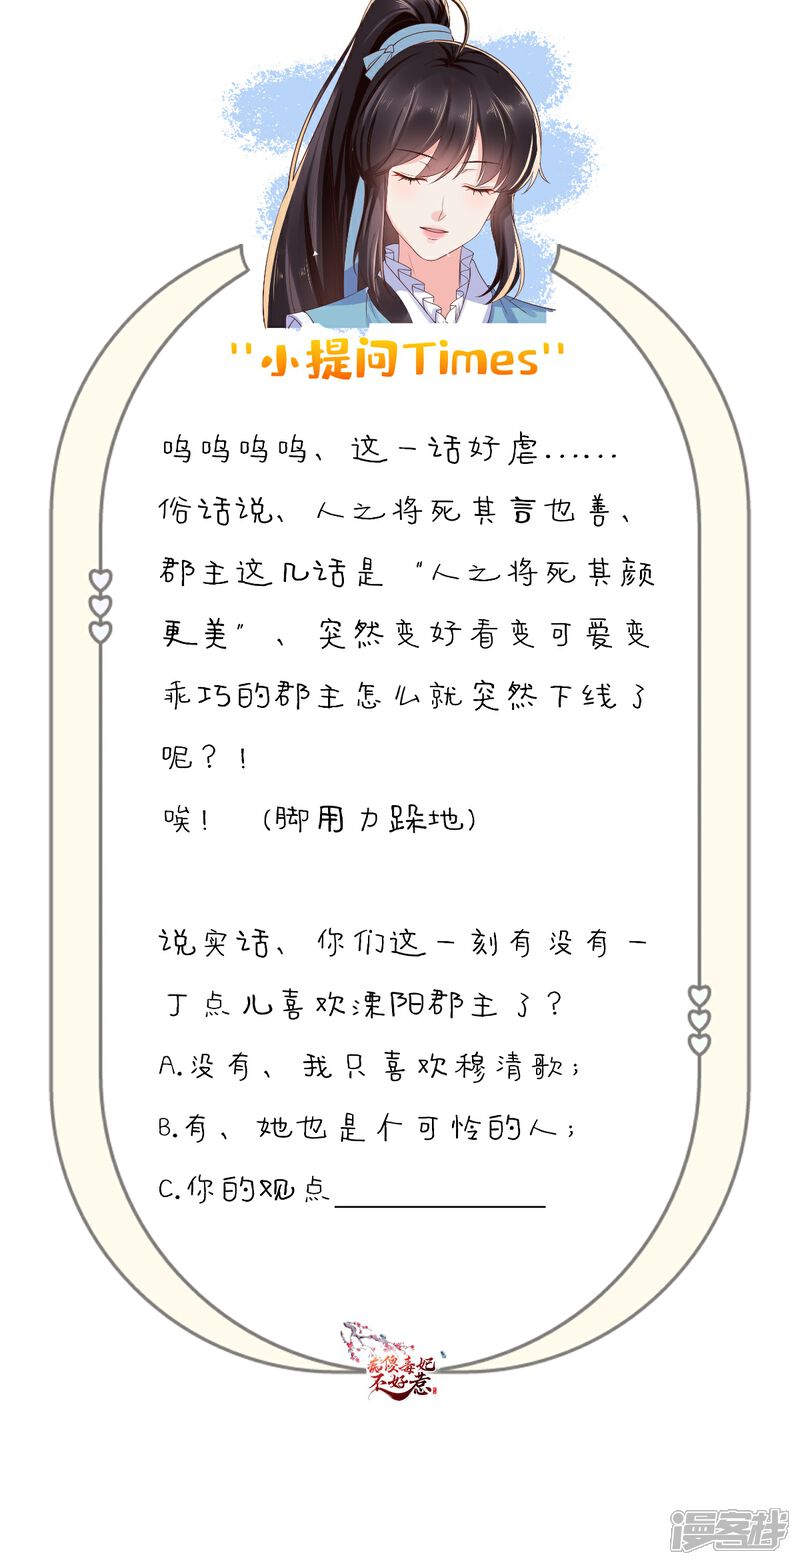 "小提问Times"
呜呜呜呜、这一话好虐……
俗话说、人之将死其言也善、
郡主这几话是“人之将死其颜
更美”、突然变好看变可爱变
乖巧的郡主怎么就突然下线了
呢？！
唉！ （脚用力跺地）
说实话、你们这一刻有没有一
丁点儿喜欢溧阳郡主了？
A.没有、我只喜欢穆清歌；
B.有、她也是个可怜的人；
C.你的观点
痴傻毒妃
不好惹
漫客栈